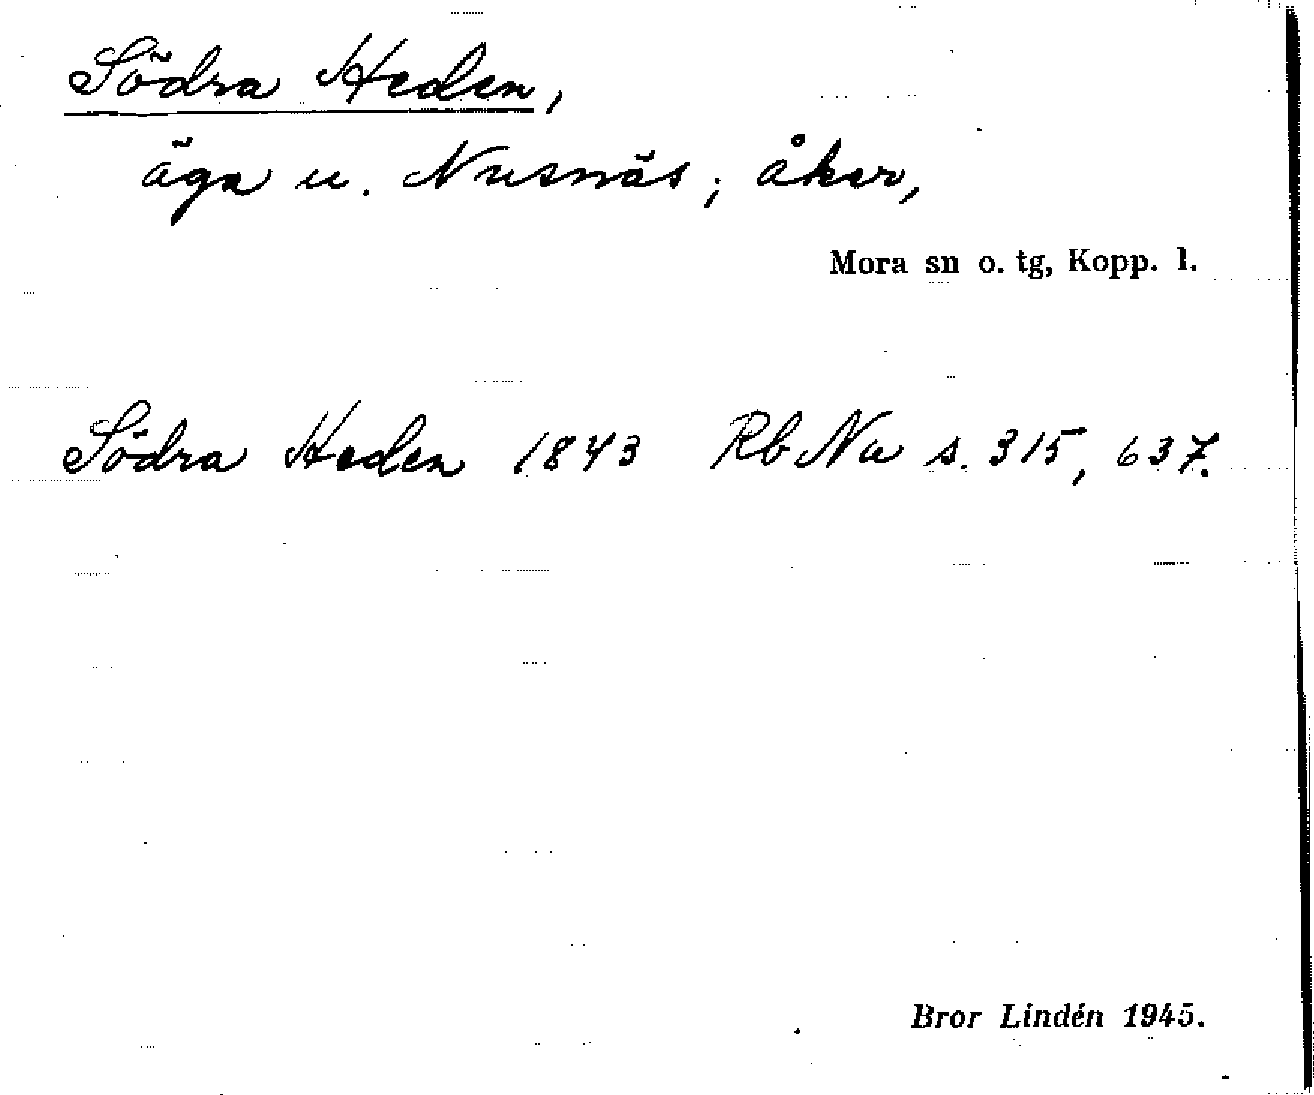 Södra Heden,
äga u. Nusnäs; åker,
Mora sn o. tg, Kopp. l.
Södra Heden 1843 Rb Nu s. 315, 637.
Bror Lindén 1945.